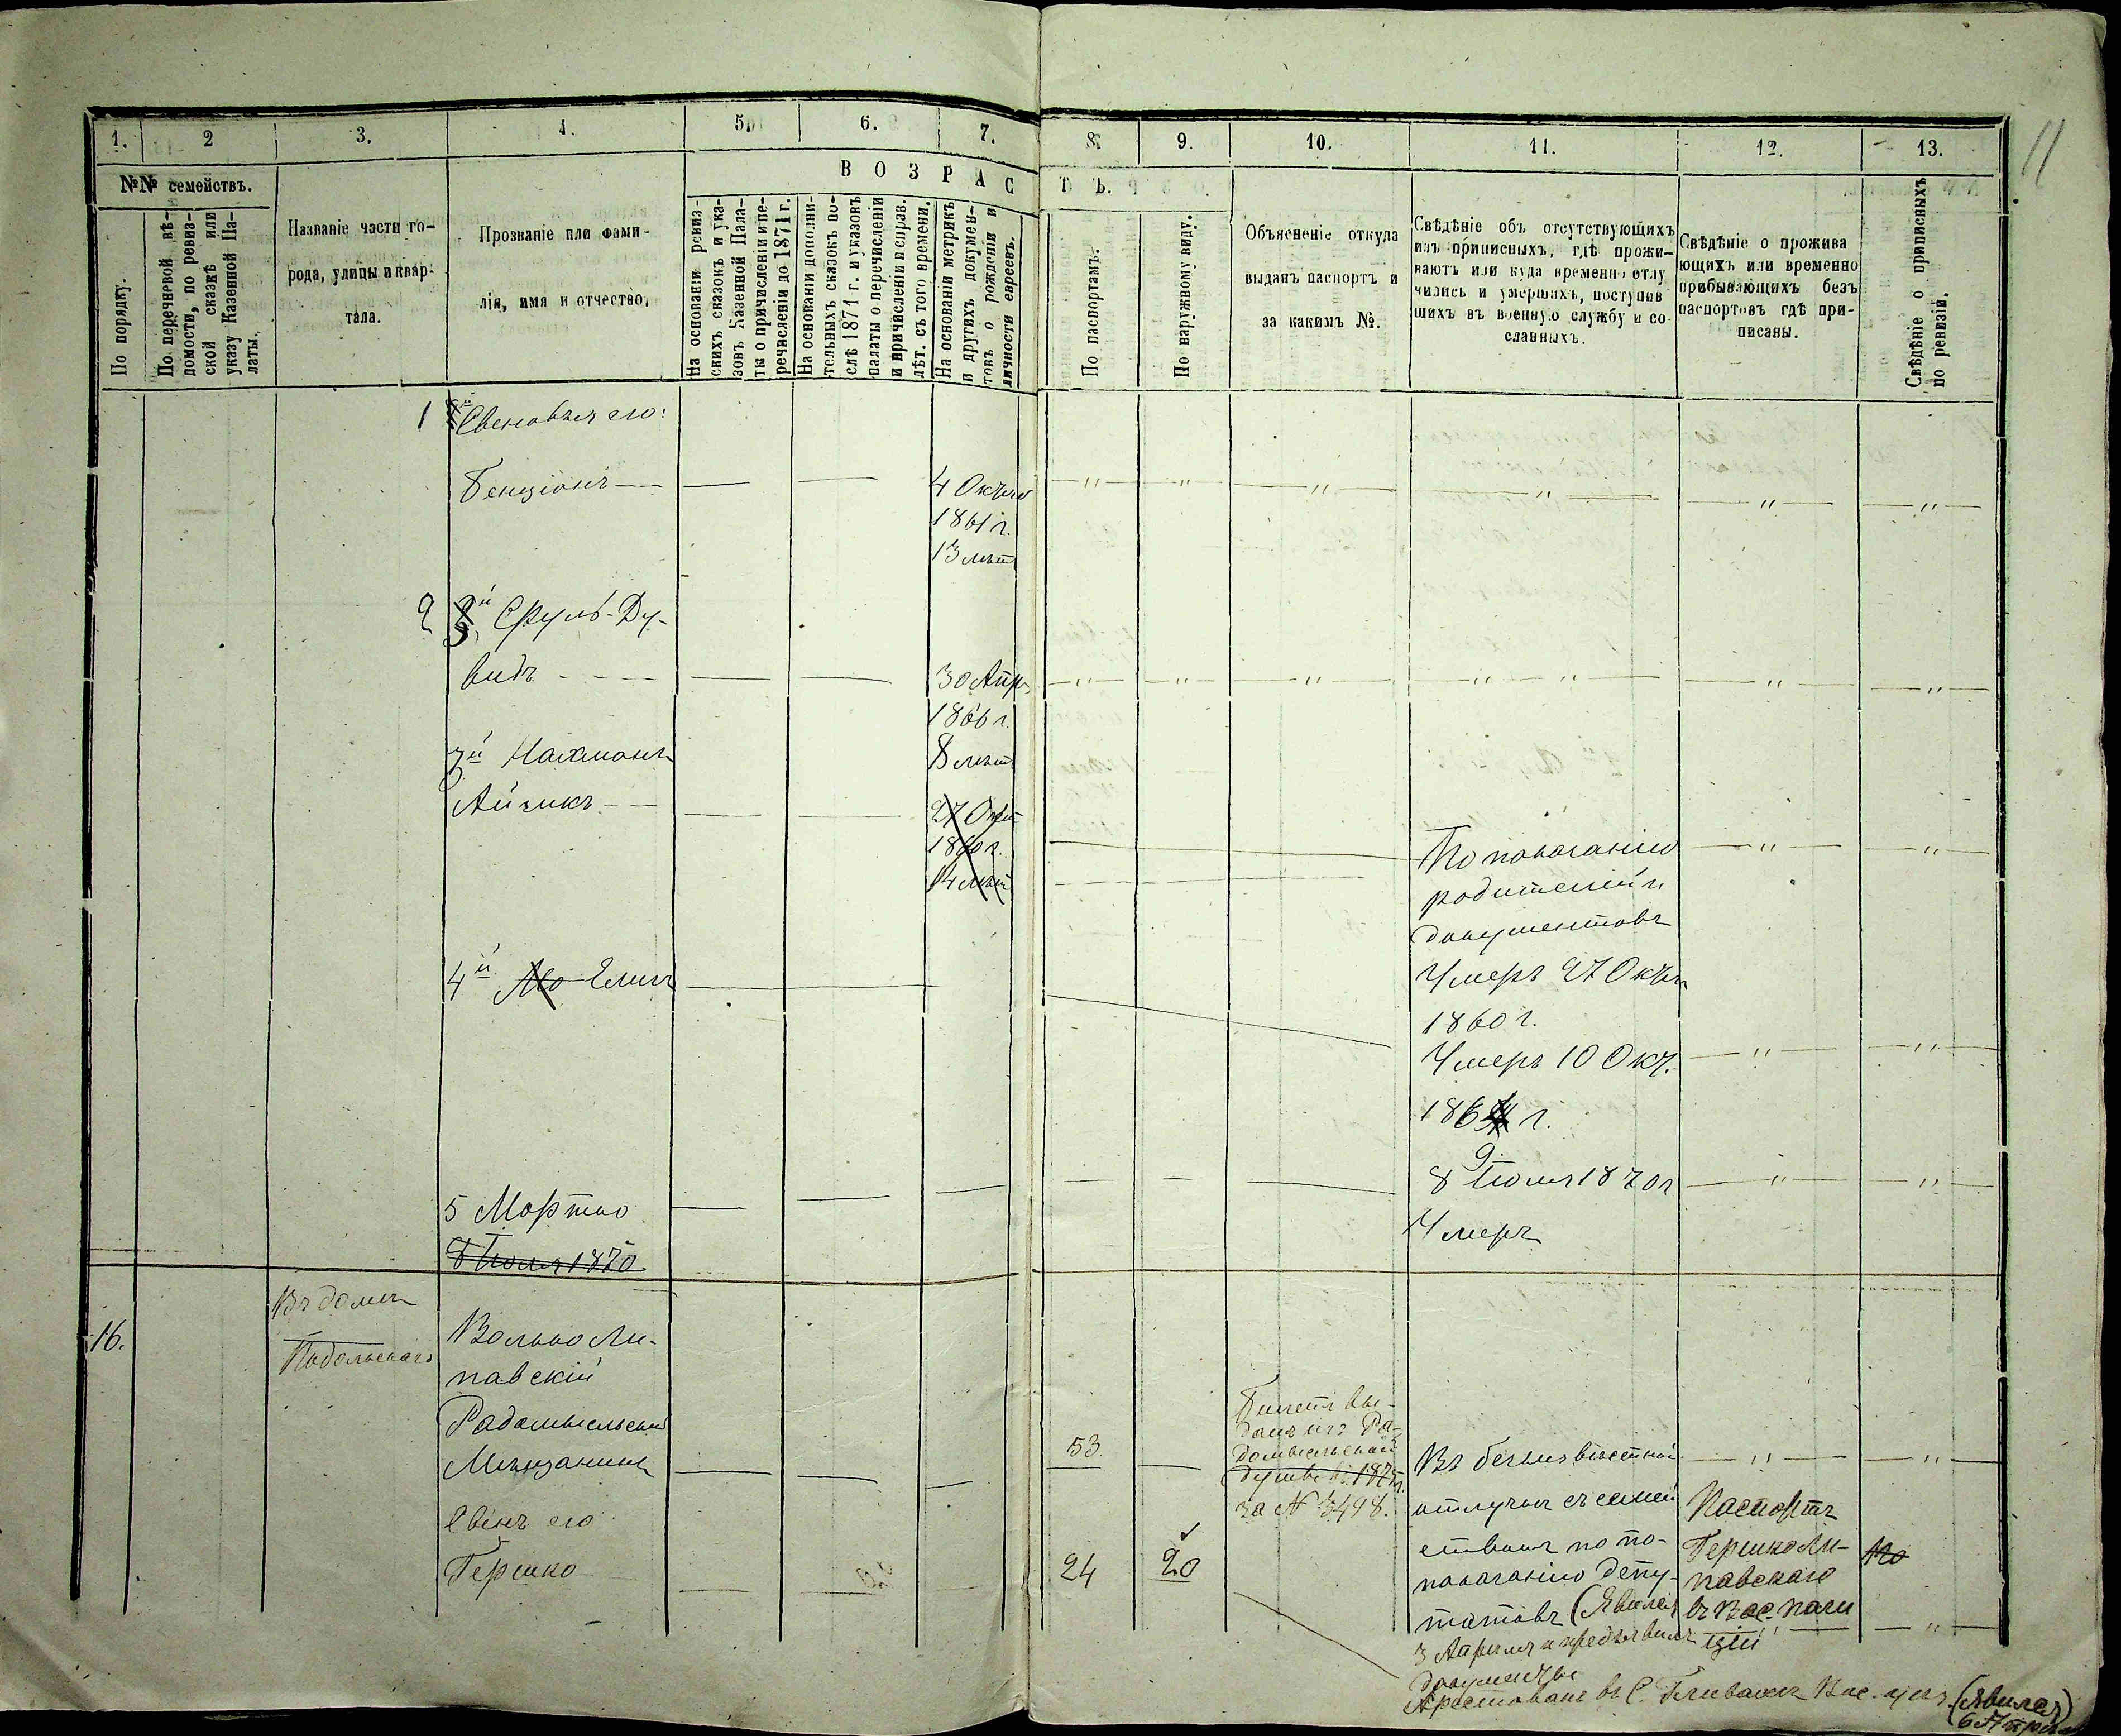 11
1.
2
3.
4.
5
6.
7.
8.
9.
10.
11.
12.
13.
№№ семействъ.
По порядку.
По перечневой вѣ-
домости, по ревиз-
ской сказкѣ или
указу Казенной Па-
латы.
Названіе части го-
рода, улицы и квар-
тала.
Прозваніе или фами-
лія, имя и отчество.
ВОЗРАС
ТЪ.
На основаніи ревиз-
скихъ сказокъ и ука-
зовъ Казенной Пала-
ты о причисленіи и пе-
речисленіи до 1871 г.
На основаніи дополни-
тельныхъ сказокъ по-
слѣ 1871 г. и указовъ
палаты о перечисленіи
и причисленіи и справ.
лѣт. съ того времени.
На основаніи метрикъ
и другихъ докумен-
товъ о рожденіи и
личности евреевъ.
По паспортамъ.
По наружному виду.
Объясненіе откуда
выданъ паспортъ и
за какимъ №.
Свѣдѣніе объ отсутствующихъ
изъ приписныхъ, гдѣ прожи-
ваютъ или куда временно отлу
чились и умершихъ, поступив
шихъ въ военную службу и со
сланныхъ.
Свѣдѣніе о прожива
ющихъ или временно
прибывающихъ безъ
паспортовъ гдѣ при-
писаны.
Свѣдѣніе о приписныхъ
по ревизіи.
1
его:
Бенціонъ
4 Октя
1861 г.
13 лѣтъ
2 Сруль-Ду-
видъ
30 Апр
1866 г.
8 лѣтъ
3й Нахманъ
Айзикъ
27 Окт
1860 г.
14 лѣтъ
По показанію
родителей и
документовъ
Умеръ 27 Октя
1860 г.
4й
Умеръ 10 Окт.
186 г.
5 Мортко
8 Іюля 1870
8 Іюля 1870 г
Умеръ
16.
Въ домѣ
Подольскаго
Волько Ли-
павскій
Радомысльскій
Мѣщанинъ
53
Билетъ вы-
данъ изъ Ра-
домысльской
Думы 187
за № 3498.
Въ безъизвѣстной
отлучкѣ съ семей
ствомъ по по-
показанію депу-
татовъ (Явился
3 Апрѣля и предъявилъ
документы
его
Гершко
24
20
Паспортъ
Гершко Ли-
павскаго
въ Вас. поли
ціи
Арестованъ въ С. Вас. уѣз. (явился
6 Апрѣля